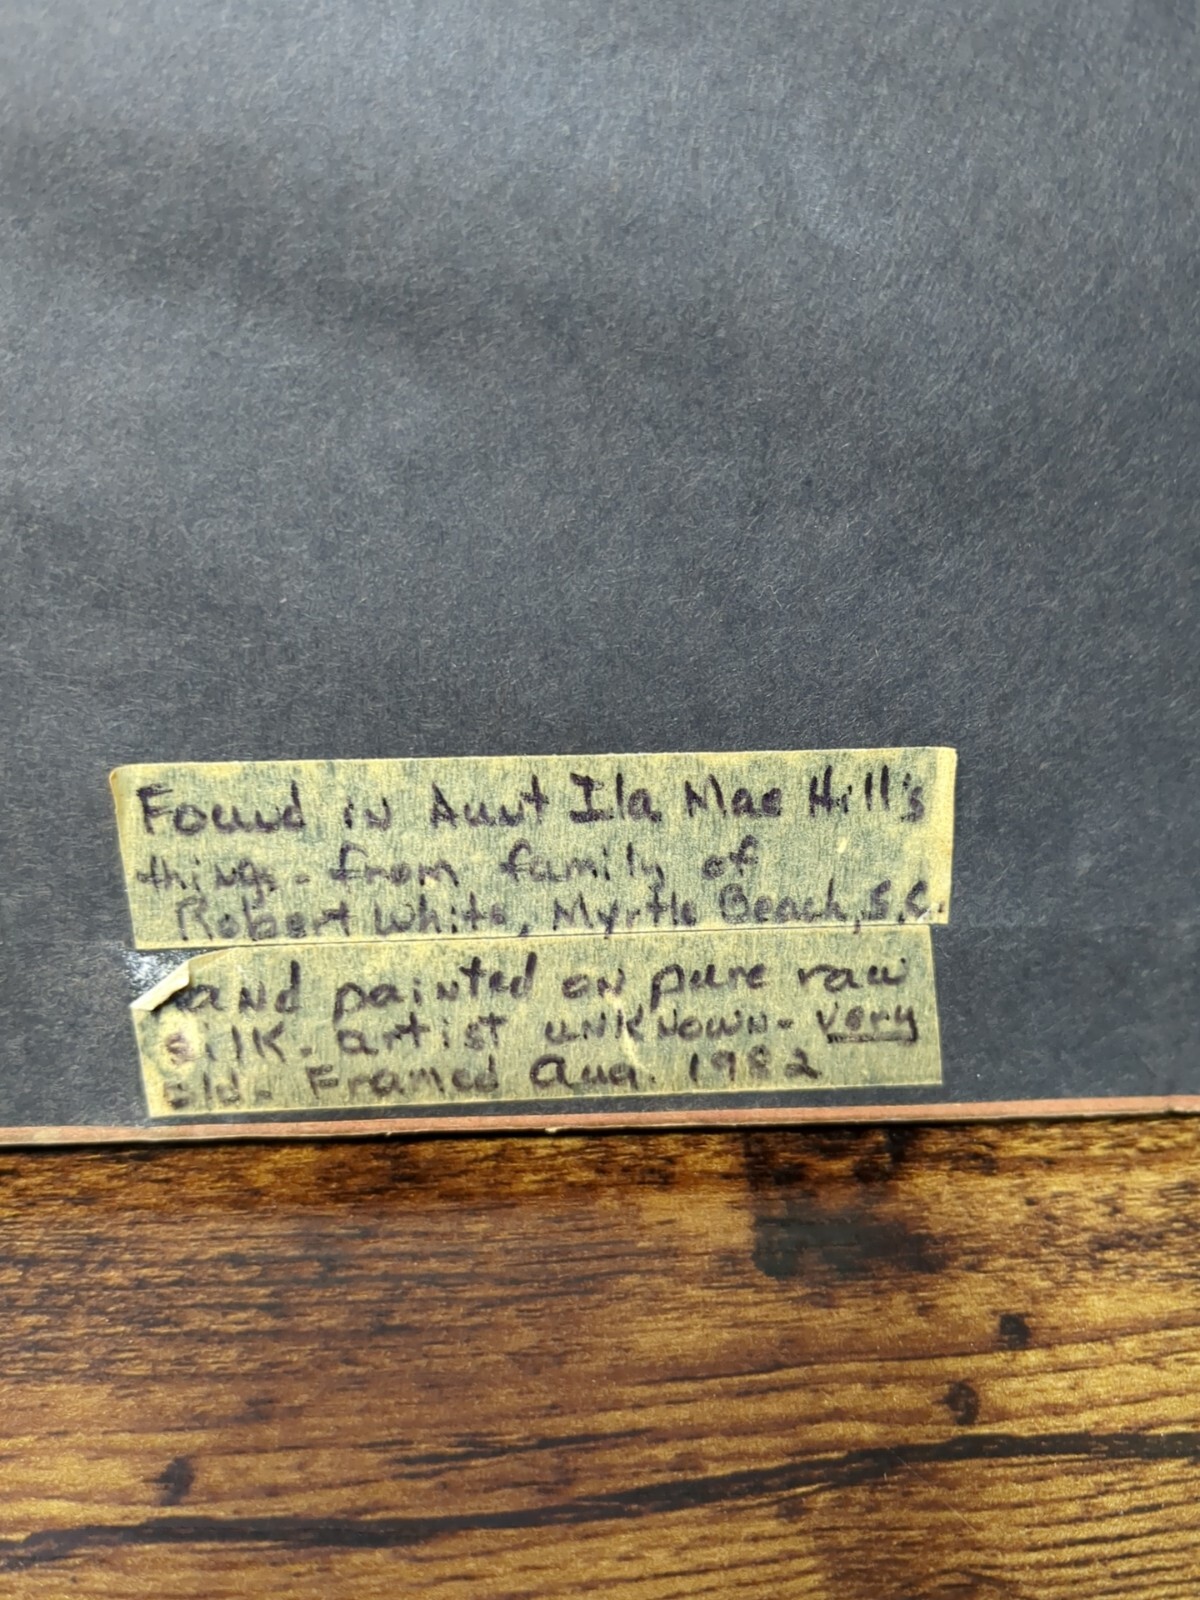 Found in Aunt Ila Mae Hill's
things - from family of
Robert White, Myrtle Beach, S.C.
and painted on pure raw
silk - artist unknown - very
old - Framed Aug. 1982